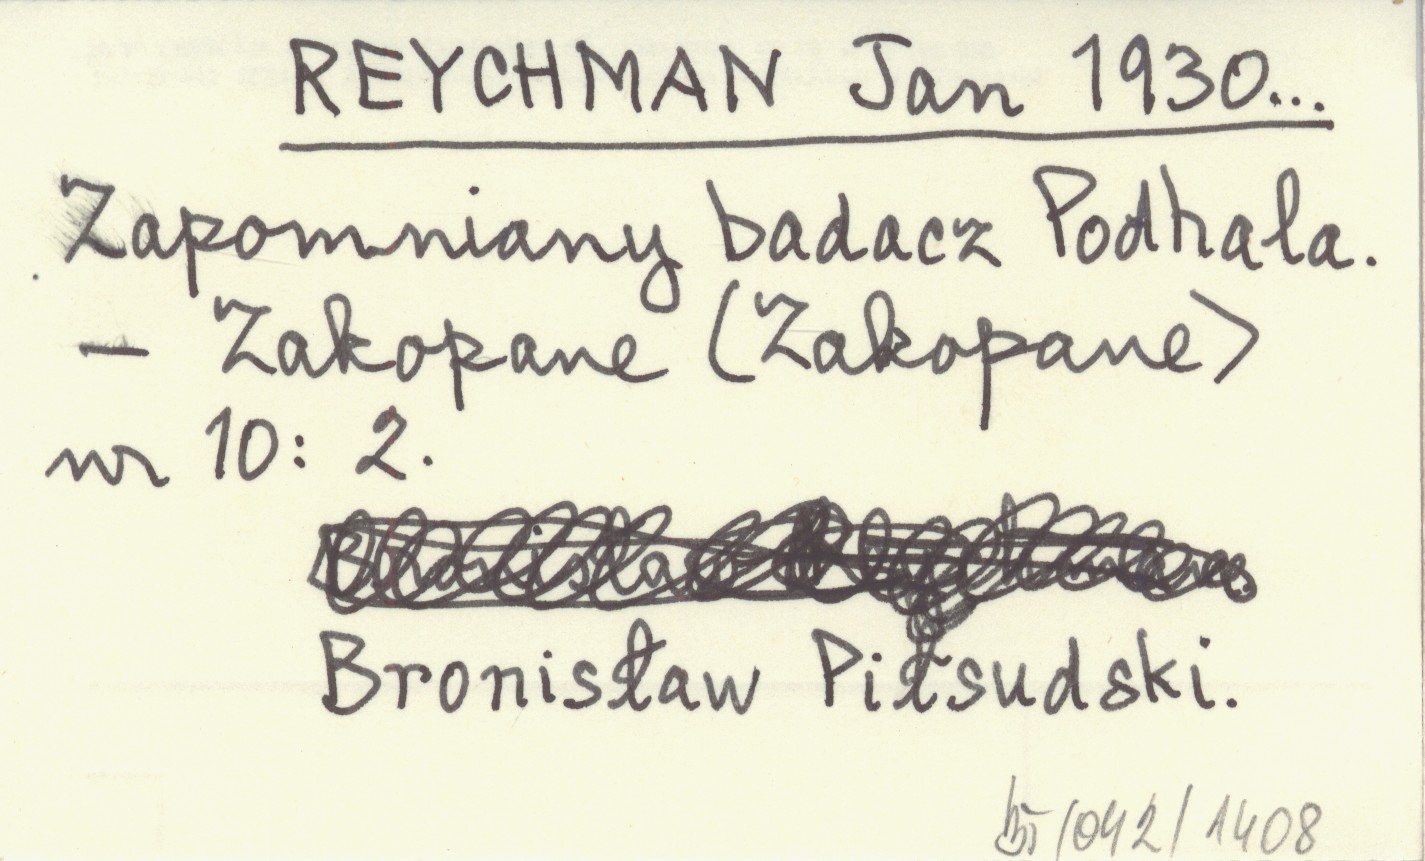 REYCHMAN Jan 1930...
Zapomniany badacz Podhala.
– Zakopane (Zakopane)
nr 10: 2.
Bronisław
Bronisław Piłsudski.
/042/1408